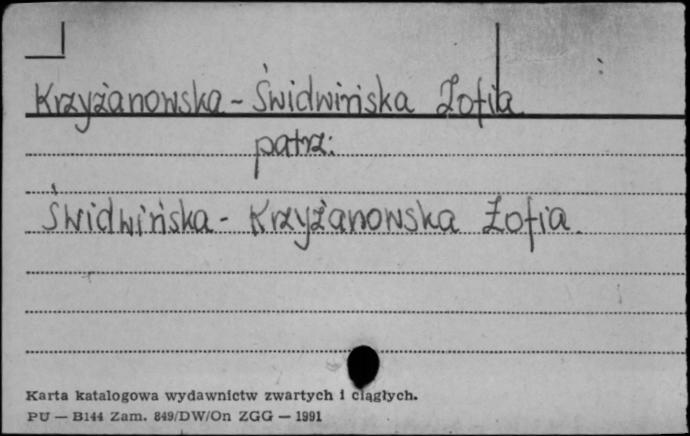 Krzyżanowska - Świdwińska Zofia
patrz:
Świdwińska - Krzyżanowska Zofia.
Karta katalogowa wydawnictw zwartych i ciągłych.
PU — B144 Zam. 849/DW/On ZGG — 1991